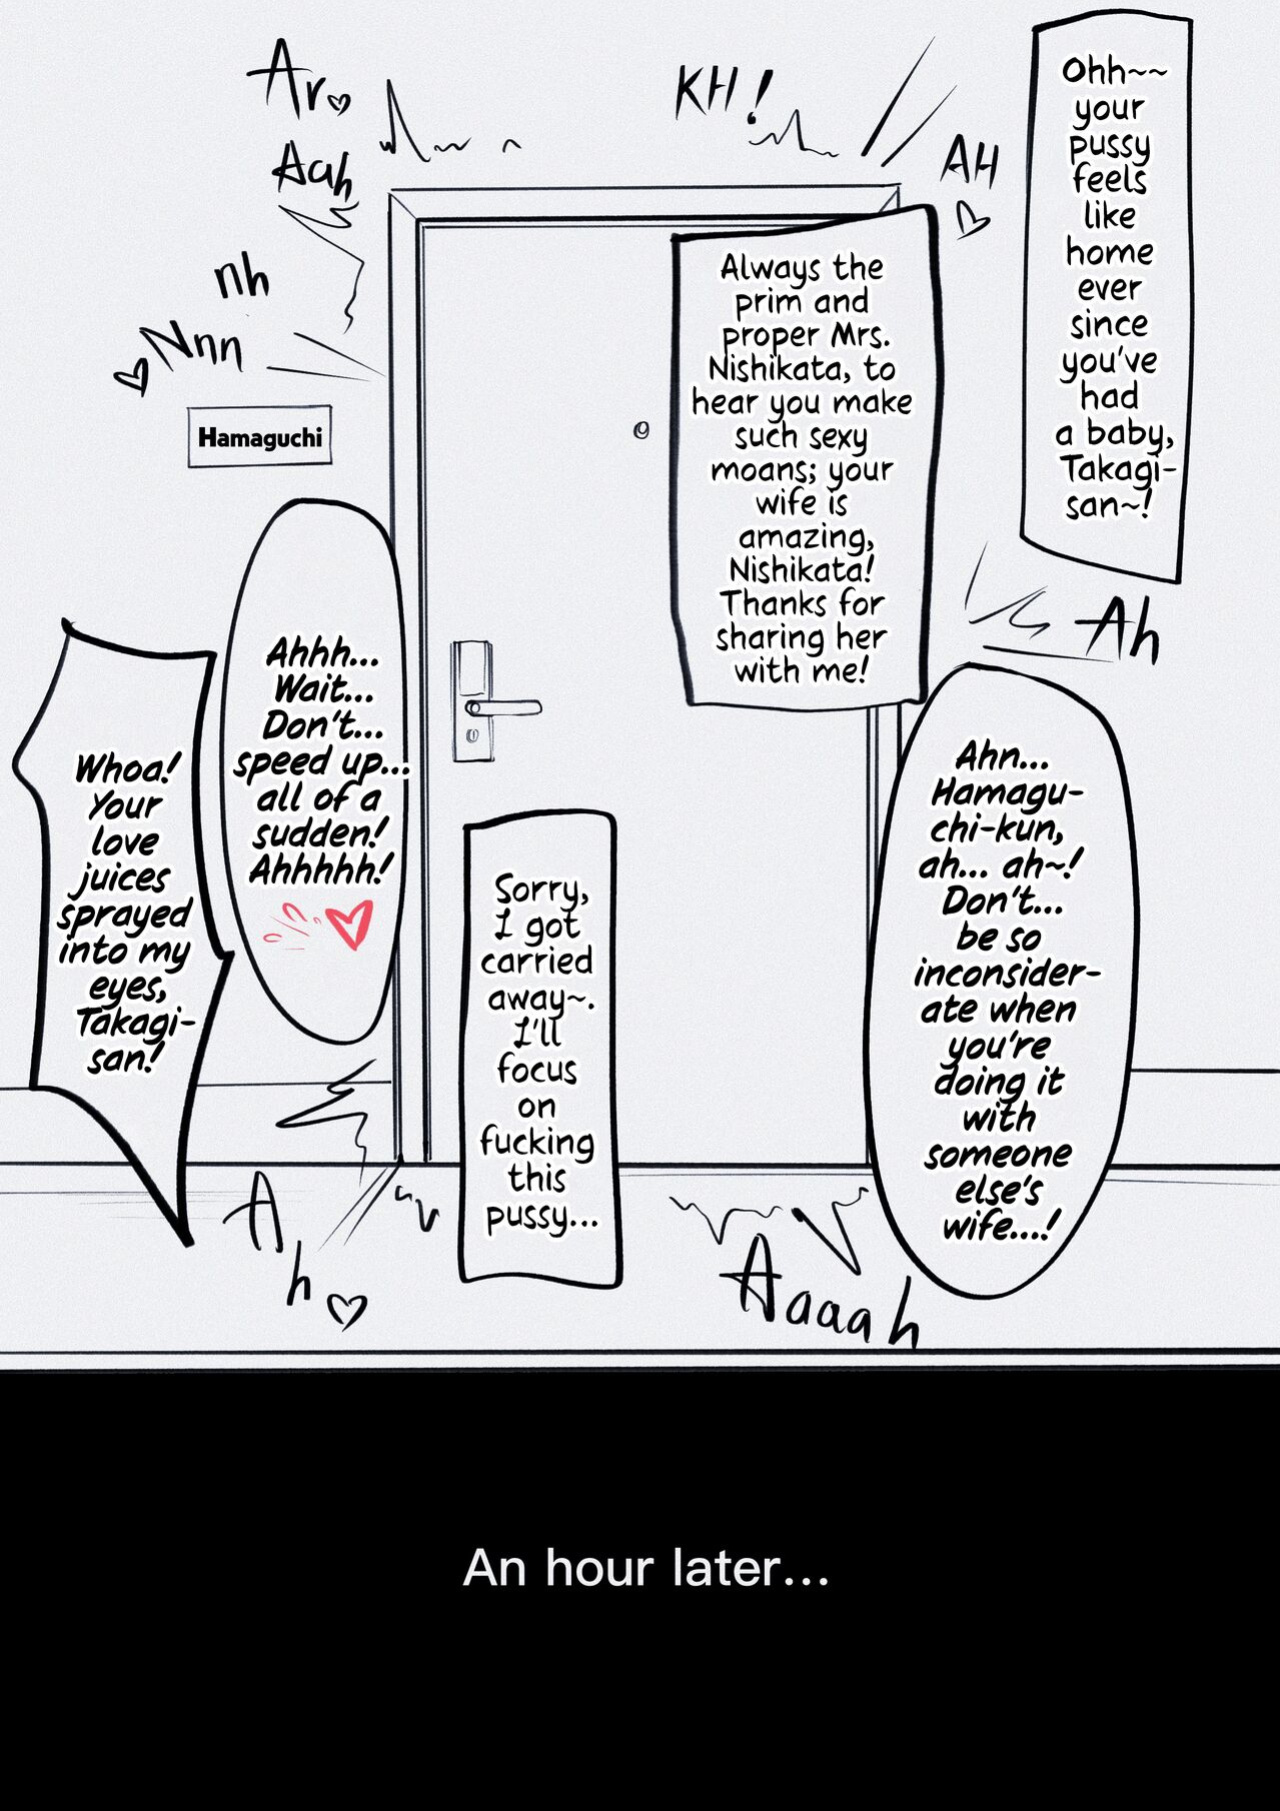 Ohh~~
your
pussy
feels
like
home
ever
since
you've
had
a baby,
Takagi-
san~!
KH!
AH
Always the
prim and
proper Mrs.
Nishikata, to
hear you make
such sexy
moans; your
wife is
amazing,
Nishikata!
Thanks for
sharing her
with me!
Ar
Aah
nh
Nnn
Hamaguchi
Ah
Ahn...
Hamagu-
chi-kun,
ah... ah~!
Don't...
be so
inconsider-
ate when
you're
doing it
with
someone
else's
wife....!
Sorry,
I got
carried
away~.
I'll
focus
on
fucking
this
pussy...
Ahhh...
Wait...
Don't...
speed up...
all of a
sudden!
Ahhhhh!
Whoa!
Your
love
juices
sprayed
into my
eyes,
Takagi-
san!
Aaaah
Ah
An hour later...